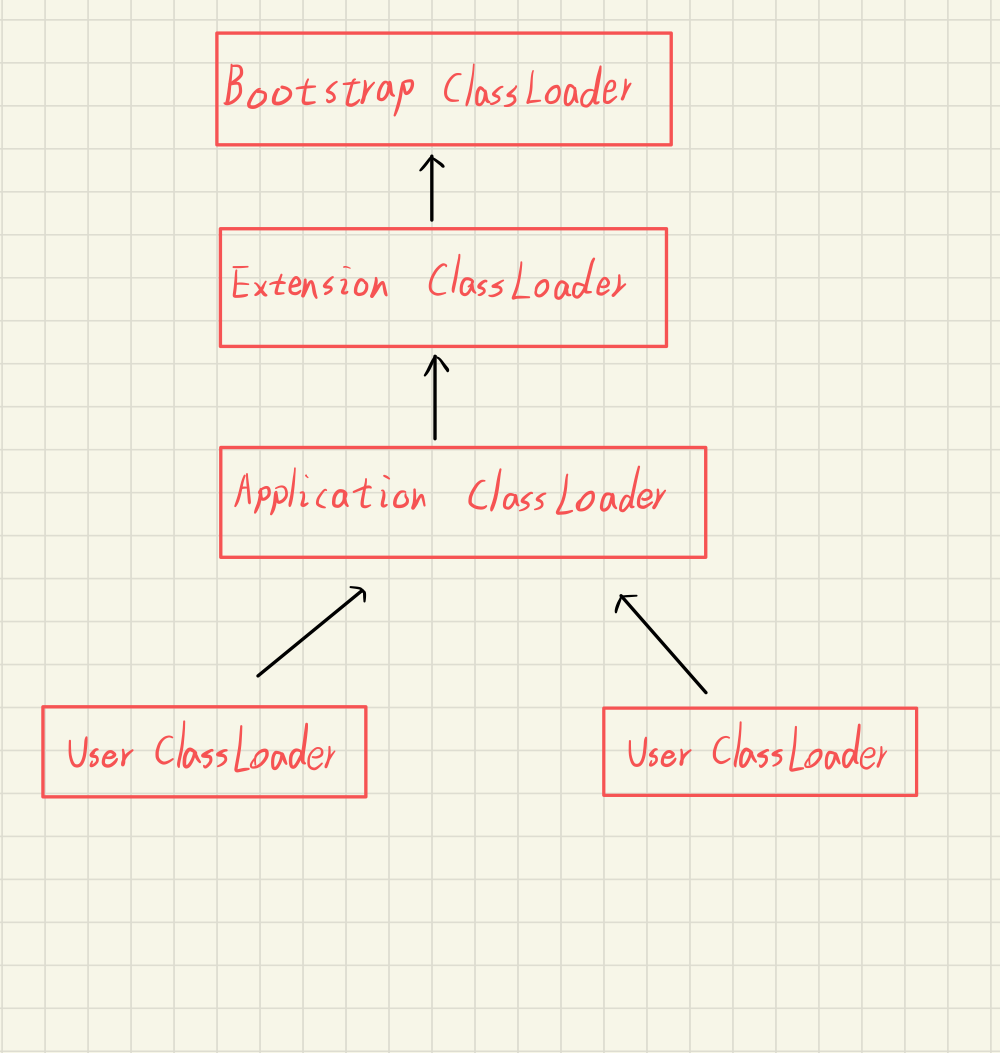 Bootstrap ClassLoader
Extension ClassLoader
Application ClassLoader
User ClassLoader
User ClassLoader